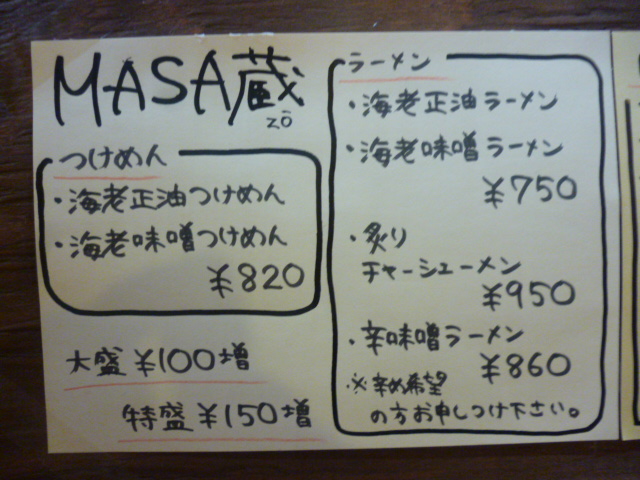 MASA蔵
zō
つけめん
・海老正油つけめん
・海老味噌つけめん
¥820
大盛¥100増
特盛¥150増
ラーメン
・海老正油ラーメン
・海老味噌ラーメン
¥750
・炙り
チャーシューメン
¥950
・辛味噌ラーメン
¥860
※辛め希望
の方お申しつけ下さい。